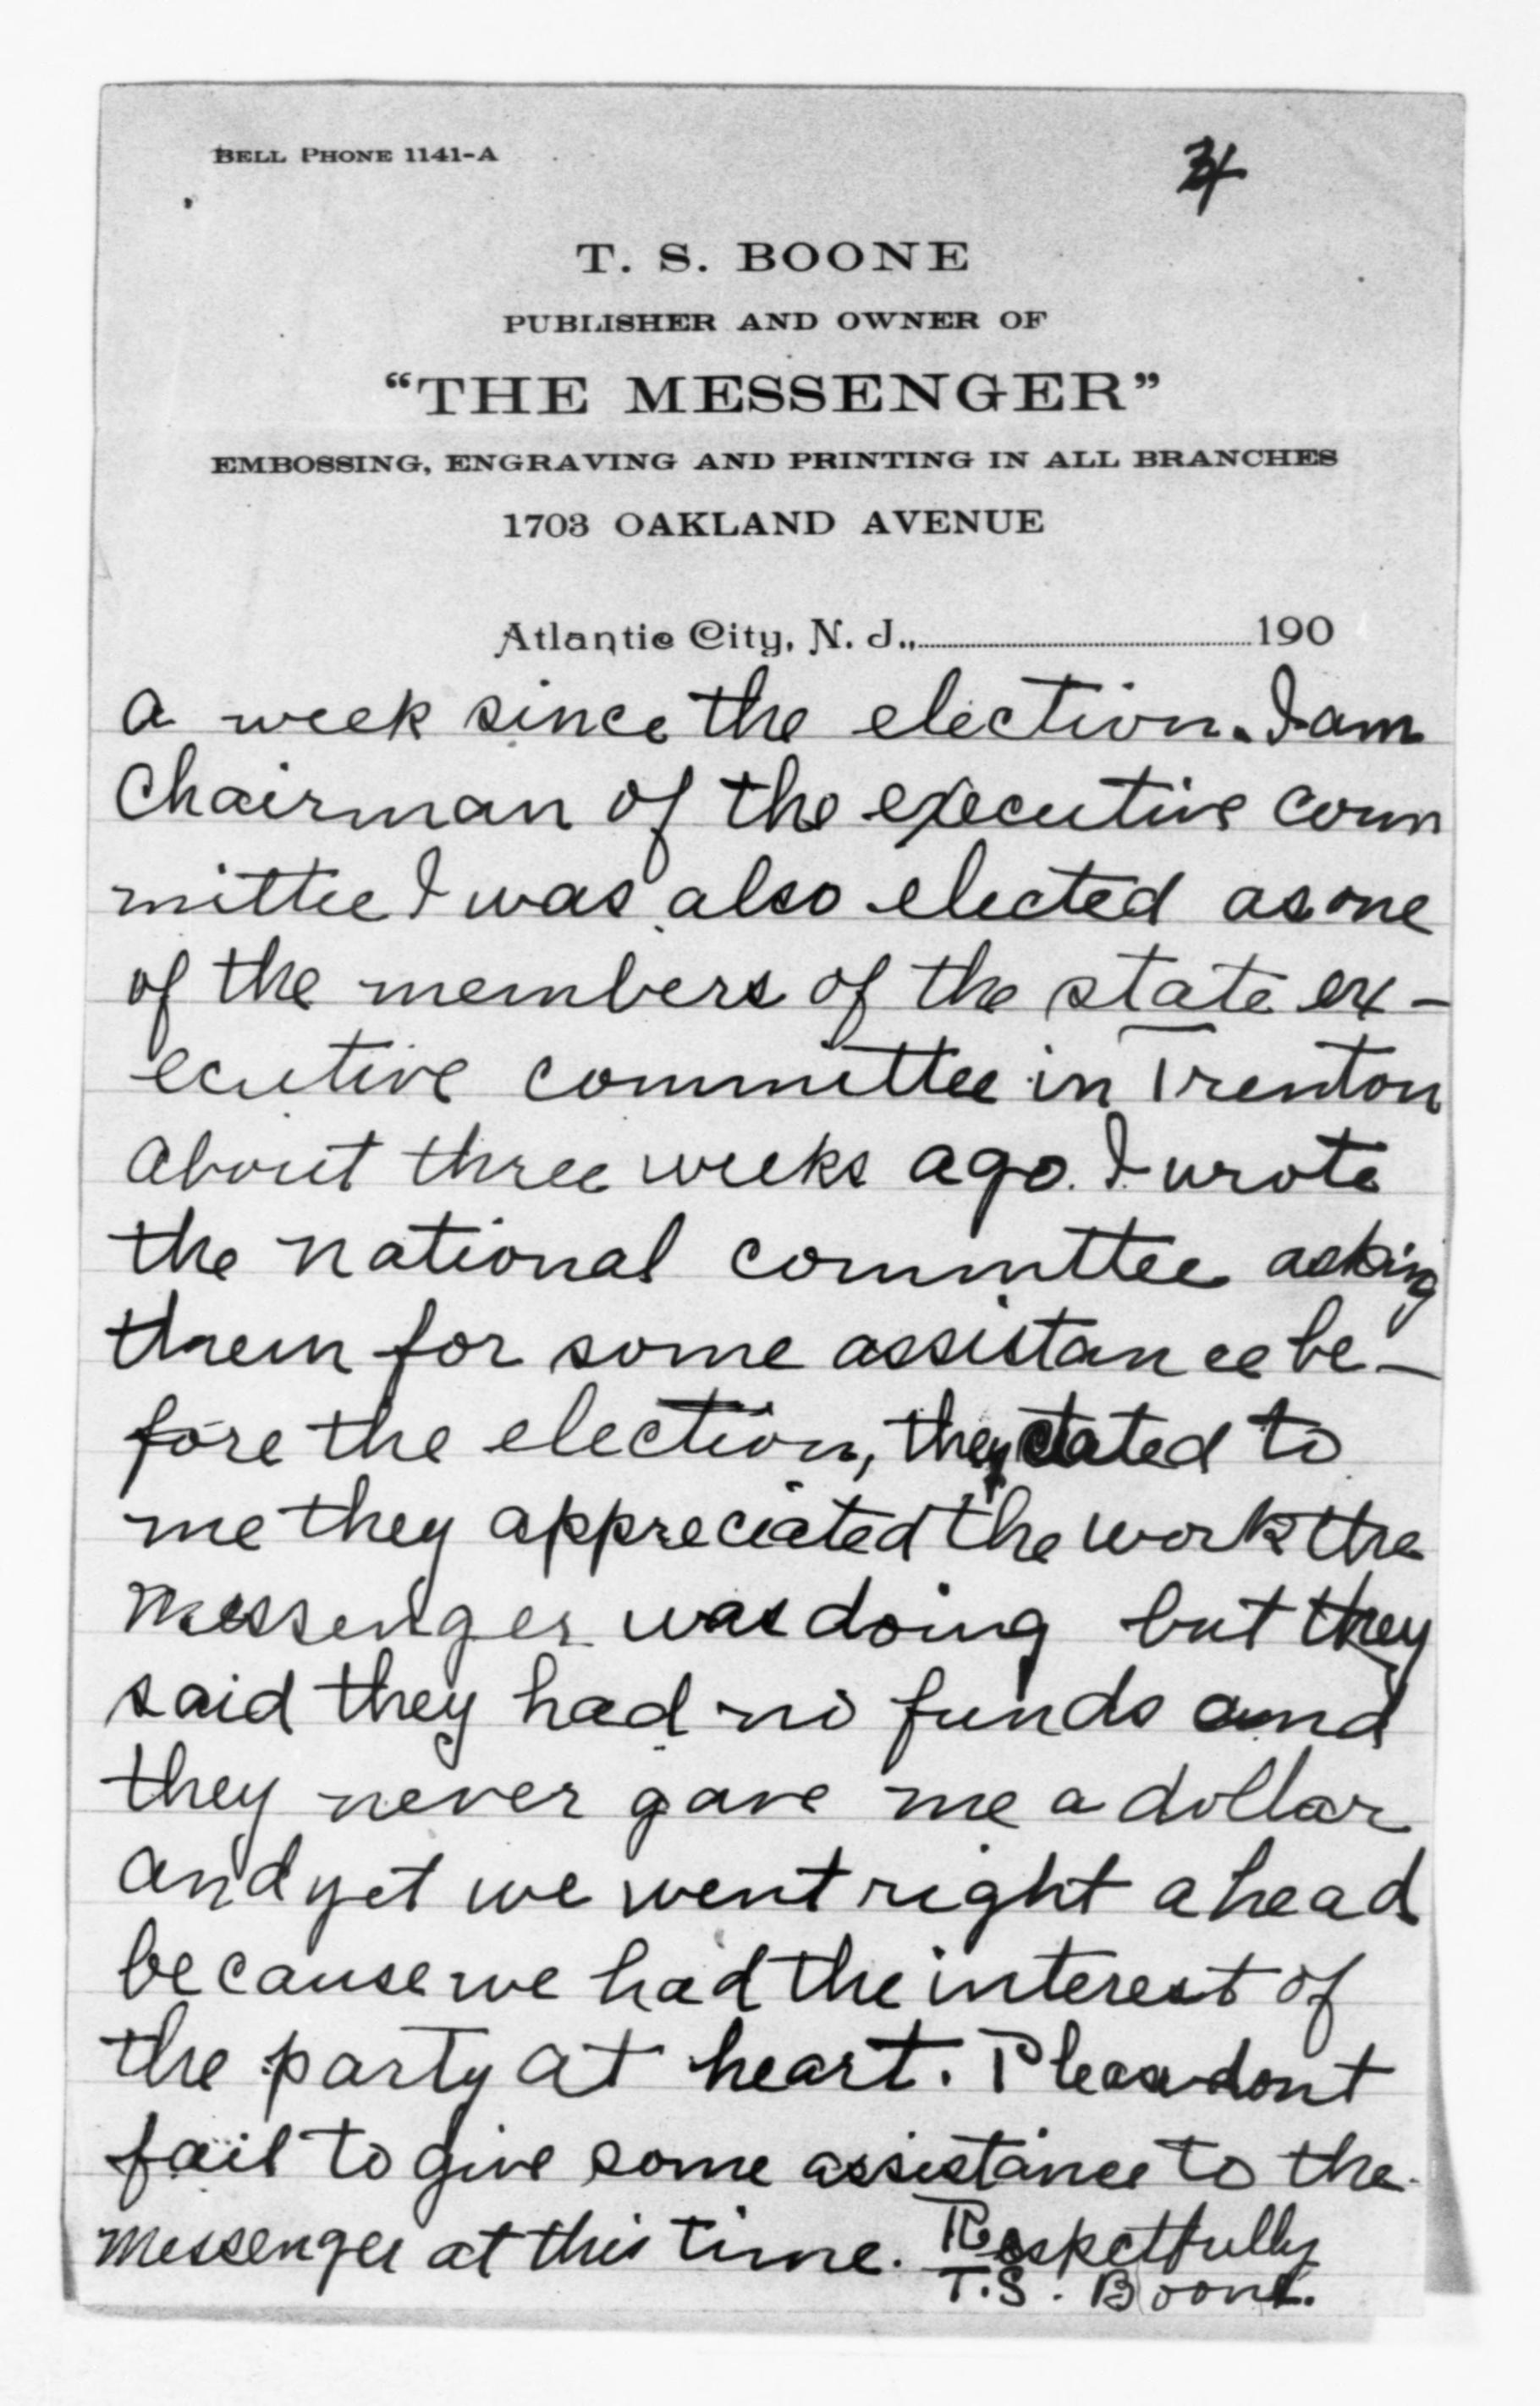 BELL PHONE 1141-A
4
T. S. BOONE
PUBLISHER AND OWNER OF
"THE MESSENGER"
EMBOSSING, ENGRAVING AND PRINTING IN ALL BRANCHES
1703 OAKLAND AVENUE
Atlantic City, N. J., 190
a week since the election. I am
Chairman of the executive com
mittee I was also elected as one
of the members of the state ex-
ecutive committee in Trenton
about three weeks ago. I wrote
the national committee asking
them for some assistance be-
fore the election, they stated to
me they appreciated the work the
Messenger was doing but they
said they had no funds and
they never gave me a dollar
and yet we went right ahead
because we had the interest of
the party at heart. Please dont
fail to give some assistance to the
Messenger at this time. Respectfully
T. S. Boone.